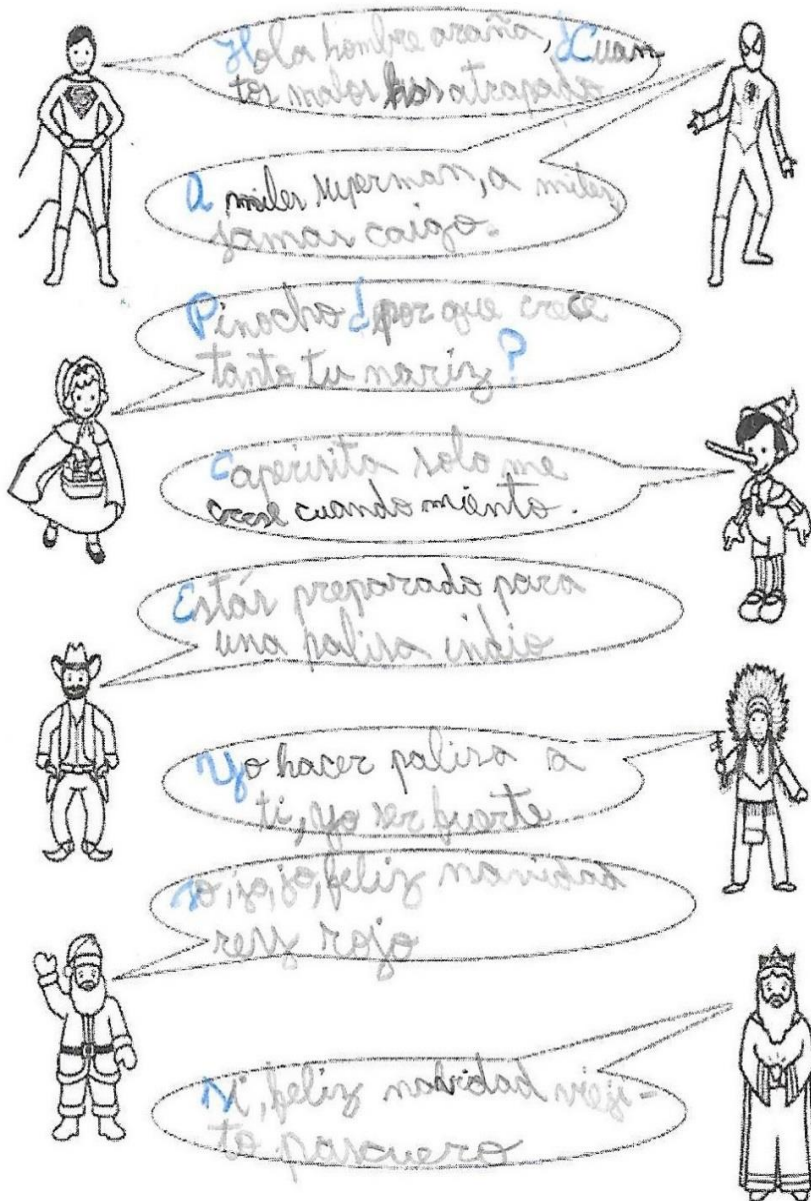 Hola hombre araña, ¿Cuan
tos malos has atrapado
A miles superman, a miles
jamas caigo.
Pinocho ¿por que crece
tanto tu nariz?
Caperusita solo me
crese cuando miento.
Estás preparado para
una palisa indio
Yo hacer palisa a
ti, yo ser fuerte
Jo, jo, jo, feliz navidad
rey rojo
Si, feliz navidad vieji-
to pascuero